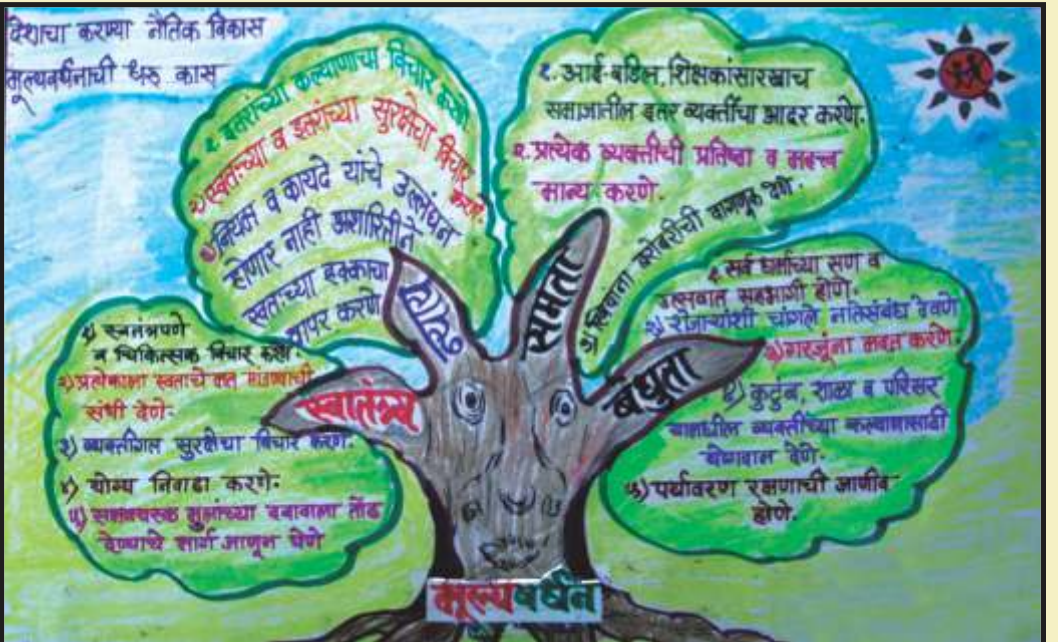 देशाचा करण्या नैतिक विकास
मूल्यवर्धनाची धरु कास
१. इतरांच्या कल्याणाचा विचार करणे.
२) स्वतःच्या व इतरांच्या सुरक्षेचा विचार करणे.
३) नियम व कायदे यांचे उल्लंघन
होणार नाही अशारितीने
स्वतःच्या हक्काचा
वापर करणे
१. आई-वडिल, शिक्षकांसारखाच
समाजातील इतर व्यक्तींचा आदर करणे.
२. प्रत्येक व्यक्तीची प्रतिष्ठा व महत्त्व
मान्य करणे.
३) स्त्रियांना बरोबरीची वागणूक देणे.
१) स्वतंत्रपणे
व चिकित्सक विचार करणे.
२) प्रत्येकाला स्वताचे मत मांडण्याची
संधी देणे.
३) व्यक्तीगत सुरक्षेचा विचार करणे.
४) योग्य निवाडा करणे.
५) समवयस्क मुलांच्या दबावाला तोंड
देण्याचे मार्ग जाणून घेणे
१. सर्व धर्माच्या सण व
उत्सवात सहभागी होणे.
२) शेजाऱ्यांशी चांगले नातेसंबंध ठेवणे
३) गरजूंना मदत करणे.
४) कुटुंब, शाळा व परिसर
यामधील व्यक्तींच्या कल्याणासाठी
योगदान देणे.
५) पर्यावरण रक्षणाची जाणीव
होणे.
स्वातंत्र्य
न्याय
समता
बंधुता
मूल्यवर्धन